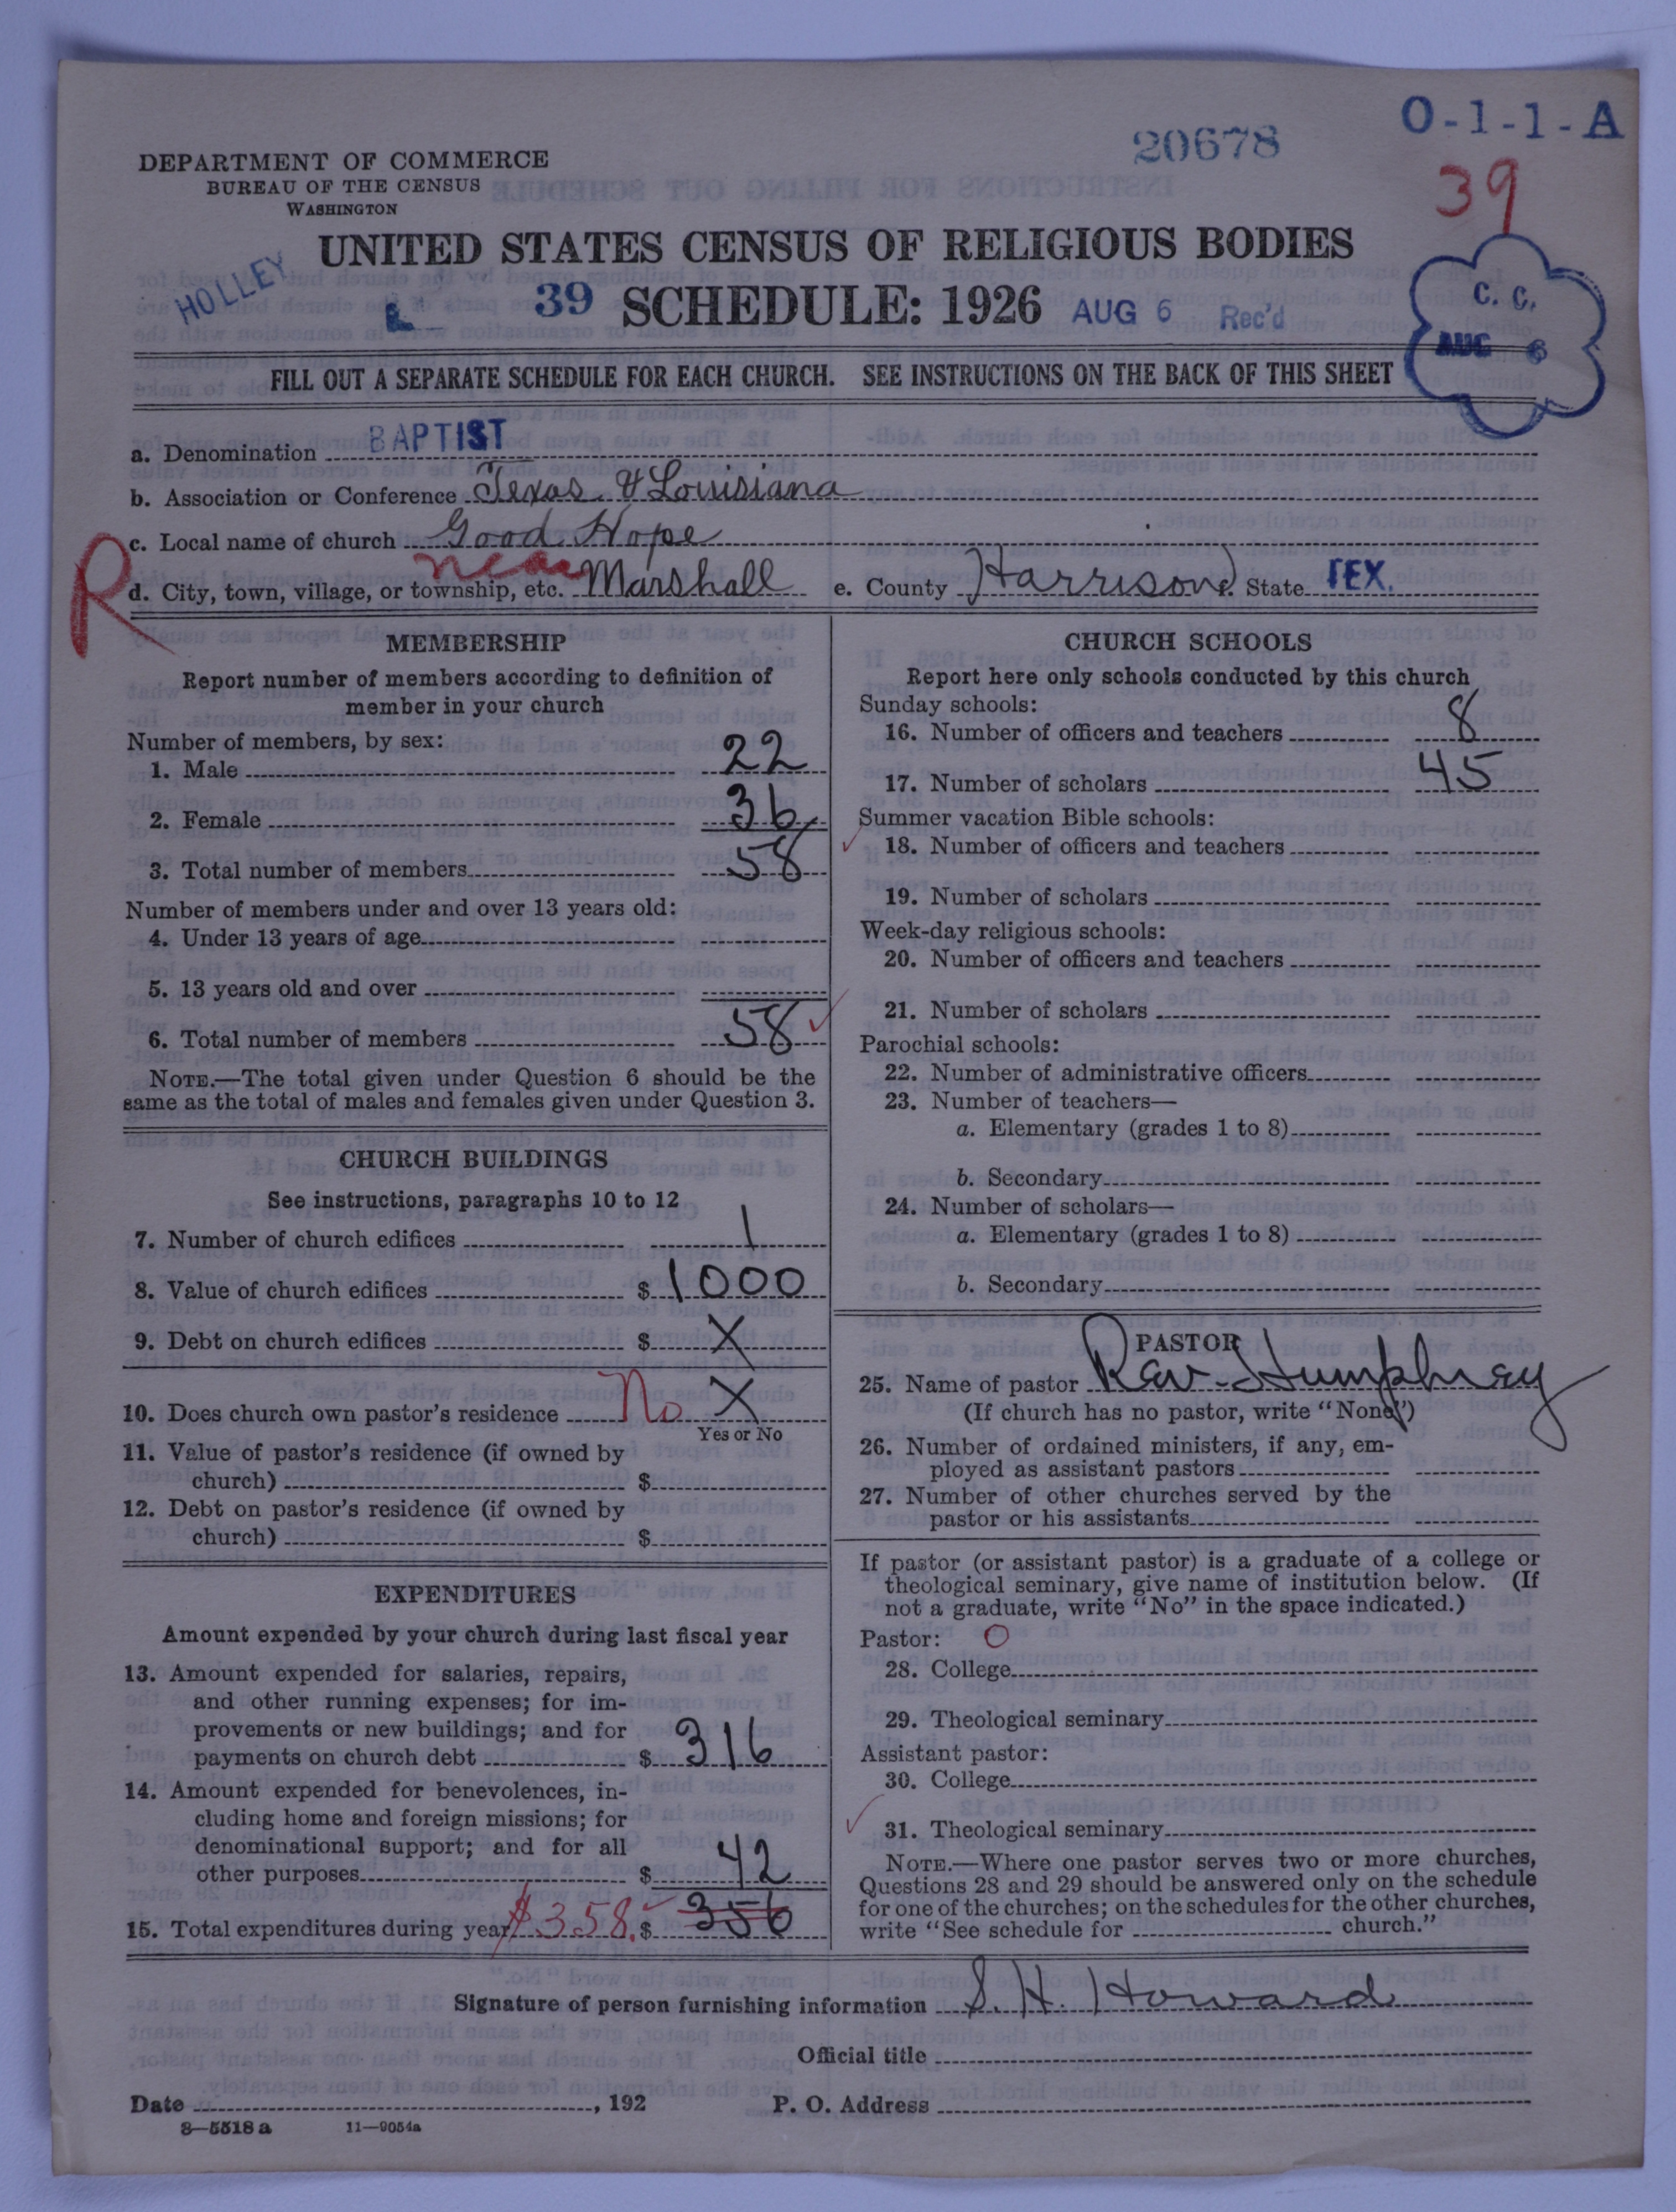 O-1-1-A
20678
39
DEPARTMENT OF COMMERCE
BUREAU OF THE CENSUS
WASHINGTON
UNITED STATES CENSUS OF RELIGIOUS BODIES
HOLLEY
39 SCHEDULE: 1926 AUG 6 Rec'd
C. C.
AUG 6
FILL OUT A SEPARATE SCHEDULE FOR EACH CHURCH. SEE INSTRUCTIONS ON THE BACK OF THIS SHEET
a. Denomination BAPTIST
b. Association or Conference Texas & Louisiana
c. Local name of church Good Hope
R
near
d. City, town, village, or township, etc. Marshall e. County Harrison State TEX.
MEMBERSHIP
Report number of members according to definition of
member in your church
Number of members, by sex:
1. Male 22
2. Female 36
3. Total number of members 58
Number of members under and over 13 years old:
4. Under 13 years of age
5. 13 years old and over
6. Total number of members 58
NOTE.—The total given under Question 6 should be the
same as the total of males and females given under Question 3.
CHURCH BUILDINGS
See instructions, paragraphs 10 to 12
7. Number of church edifices 1
8. Value of church edifices $ 1000
9. Debt on church edifices $ X
10. Does church own pastor's residence No X
Yes or No
11. Value of pastor's residence (if owned by
church) $
12. Debt on pastor's residence (if owned by
church) $
EXPENDITURES
Amount expended by your church during last fiscal year
13. Amount expended for salaries, repairs,
and other running expenses; for im-
provements or new buildings; and for
payments on church debt $ 316
14. Amount expended for benevolences, in-
cluding home and foreign missions; for
denominational support; and for all
other purposes $ 42
15. Total expenditures during year $358. $ 356
CHURCH SCHOOLS
Report here only schools conducted by this church
Sunday schools:
16. Number of officers and teachers 8
17. Number of scholars 45
Summer vacation Bible schools:
18. Number of officers and teachers
19. Number of scholars
Week-day religious schools:
20. Number of officers and teachers
21. Number of scholars
Parochial schools:
22. Number of administrative officers
23. Number of teachers—
a. Elementary (grades 1 to 8)
b. Secondary
24. Number of scholars—
a. Elementary (grades 1 to 8)
b. Secondary
PASTOR
25. Name of pastor Rev. Humphrey
(If church has no pastor, write "None")
26. Number of ordained ministers, if any, em-
ployed as assistant pastors
27. Number of other churches served by the
pastor or his assistants
If pastor (or assistant pastor) is a graduate of a college or
theological seminary, give name of institution below. (If
not a graduate, write "No" in the space indicated.)
Pastor: O
28. College
29. Theological seminary
Assistant pastor:
30. College
31. Theological seminary
NOTE.—Where one pastor serves two or more churches,
Questions 28 and 29 should be answered only on the schedule
for one of the churches; on the schedules for the other churches,
write "See schedule for church."
Signature of person furnishing information S. H. Howard
Official title
Date , 192 P. O. Address
8—5518 a 11—9054a